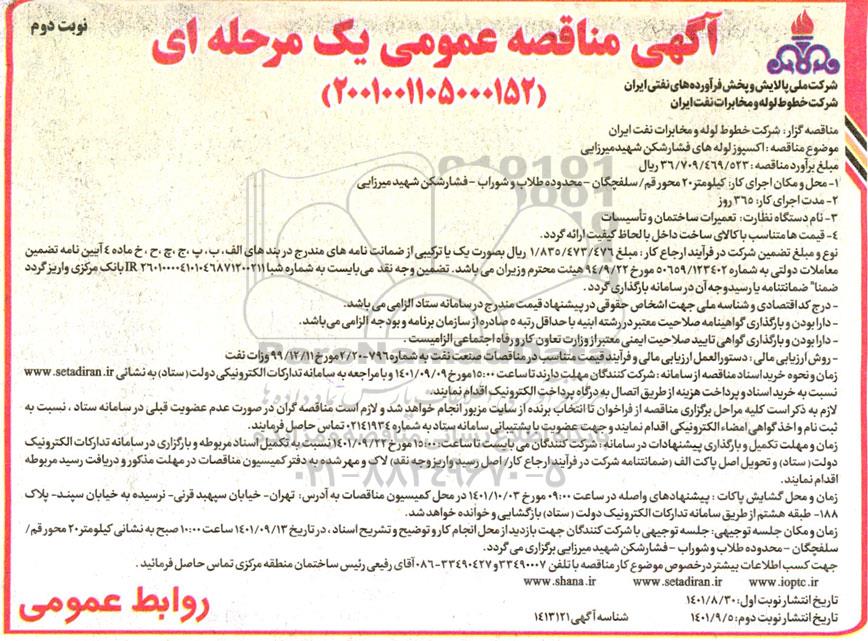 نوبت دوم
آگهی مناقصه عمومی یک مرحله ای
(۲۰۰۱۰۰۱۱۰۵۰۰۰۱۵۲)
شرکت ملی پالایش و پخش فرآورده های نفتی ایران
شرکت خطوط لوله و مخابرات نفت ایران
مناقصه گزار: شرکت خطوط لوله و مخابرات نفت ایران
موضوع مناقصه: اکسپوز لوله های فشارشکن شهید میرزایی
مبلغ برآورد مناقصه: ۳۶/۷۰۹/۴۶۹/۵۲۳ ریال
۱- محل و مکان اجرای کار: کیلومتر ۲۰ محور قم/ سلفچگان – محدوده طلاب و شوراب – فشارشکن شهید میرزایی
۲- مدت اجرای کار: ۳۶۵ روز
۳- نام دستگاه نظارت: تعمیرات ساختمان و تأسیسات
۴- قیمت ها متناسب با کالای ساخت داخل با لحاظ کیفیت ارائه گردد.
نوع و مبلغ تضمین شرکت در فرآیند ارجاع کار: مبلغ ۱/۸۳۵/۴۷۳/۴۷۶ ریال بصورت یک یا ترکیبی از ضمانت نامه های مندرج در بند های الف، ب، پ، ج، چ، ح، خ ماده ۴ آیین نامه تضمین
معاملات دولتی به شماره ۱۲۳۴۰۲/ت۵۰۶۵۹ مورخ ۹۴/۹/۲۲ هیئت محترم وزیران می باشد. تضمین وجه نقد می بایست به شماره شبا IR ۲۶۰۱۰۰۰۰۴۱۰۱۰۴۶۸۷۱۲۰۰۲۱۱ بانک مرکزی واریز گردد
ضمنا" ضمانتنامه یا رسید وجه آن در سامانه بارگذاری گردد.
- درج کد اقتصادی و شناسه ملی جهت اشخاص حقوقی در پیشنهاد قیمت مندرج در سامانه ستاد الزامی می باشد.
- دارا بودن و بارگذاری گواهینامه صلاحیت معتبر در رشته ابنیه با حداقل رتبه ۵ صادره از سازمان برنامه و بودجه الزامی می باشد.
- دارا بودن و بارگذاری گواهی تایید صلاحیت ایمنی معتبر از وزارت تعاون کار و رفاه اجتماعی الزامیست.
- روش ارزیابی مالی: دستورالعمل ارزیابی مالی و فرآیند قیمت متناسب در مناقصات صنعت نفت به شماره ۷۹۶-۲/۲۰ مورخ ۹۹/۱۲/۱۱ وزات نفت
زمان و نحوه خرید اسناد مناقصه از سامانه: شرکت کنندگان مهلت دارند تا ساعت ۱۵:۰۰ مورخ ۱۴۰۱/۰۹/۰۹ و با مراجعه به سامانه تدارکات الکترونیکی دولت (ستاد) به نشانی www.setadiran.ir
نسبت به خرید اسناد و پرداخت هزینه از طریق اتصال به درگاه پرداخت الکترونیک اقدام نمایند.
لازم به ذکر است کلیه مراحل برگزاری مناقصه از فراخوان تا انتخاب برنده از سایت مزبور انجام خواهد شد و لازم است مناقصه گران در صورت عدم عضویت قبلی در سامانه ستاد، نسبت به
ثبت نام و اخذ گواهی امضاء الکترونیکی اقدام نمایند و جهت عضویت با پشتیبانی سامانه ستاد به شماره ۰۲۱۴۱۹۳۴ تماس حاصل فرمایند.
زمان و مهلت تکمیل و بارگذاری پیشنهادات در سامانه: شرکت کنندگان می بایست تا ساعت ۱۵:۰۰ مورخ ۱۴۰۱/۰۹/۲۳ نسبت به تکمیل اسناد مربوطه و بارگزاری در سامانه تدارکات الکترونیک
دولت (ستاد) و تحویل اصل پاکت الف (ضمانتنامه شرکت در فرآیند ارجاع کار/ اصل رسید واریز وجه نقد) لاک و مهر شده به دفتر کمیسیون مناقصات در مهلت مذکور و دریافت رسید مربوطه
اقدام نمایند.
زمان و محل گشایش پاکات: پیشنهادهای واصله در ساعت ۰۹:۰۰ مورخ ۱۴۰۱/۱۰/۰۳ در محل کمیسیون مناقصات به آدرس: تهران- خیابان سپهبد قرنی- نرسیده به خیابان سپند- پلاک
۱۸۸- طبقه هشتم از طریق سامانه تدارکات الکترونیک دولت (ستاد) بازگشایی و خوانده خواهد شد.
زمان و مکان جلسه توجیهی: جلسه توجیهی با شرکت کنندگان جهت بازدید از محل انجام کار و توضیح و تشریح اسناد، در تاریخ ۱۴۰۱/۰۹/۱۳ ساعت ۱۰:۰۰ صبح به نشانی کیلومتر ۲۰ محور قم/
سلفچگان – محدوده طلاب و شوراب – فشارشکن شهید میرزایی برگزاری می گردد.
جهت کسب اطلاعات بیشتر در خصوص موضوع کار مناقصه با تلفن ۳۳۴۹۰۰۰۷ و ۳۳۴۹۰۴۲۷-۰۸۶ آقای رفیعی رئیس ساختمان منطقه مرکزی تماس حاصل فرمائید.
www.ioptc.ir www.setadiran.ir www.shana.ir
تاریخ انتشار نوبت اول: ۱۴۰۱/۸/۳۰
تاریخ انتشار نوبت دوم: ۱۴۰۱/۹/۵ شناسه آگهی ۱۴۱۳۱۲۱
روابط عمومی
۰۲۱-۸۸۳۴۹۶۷۰-۵